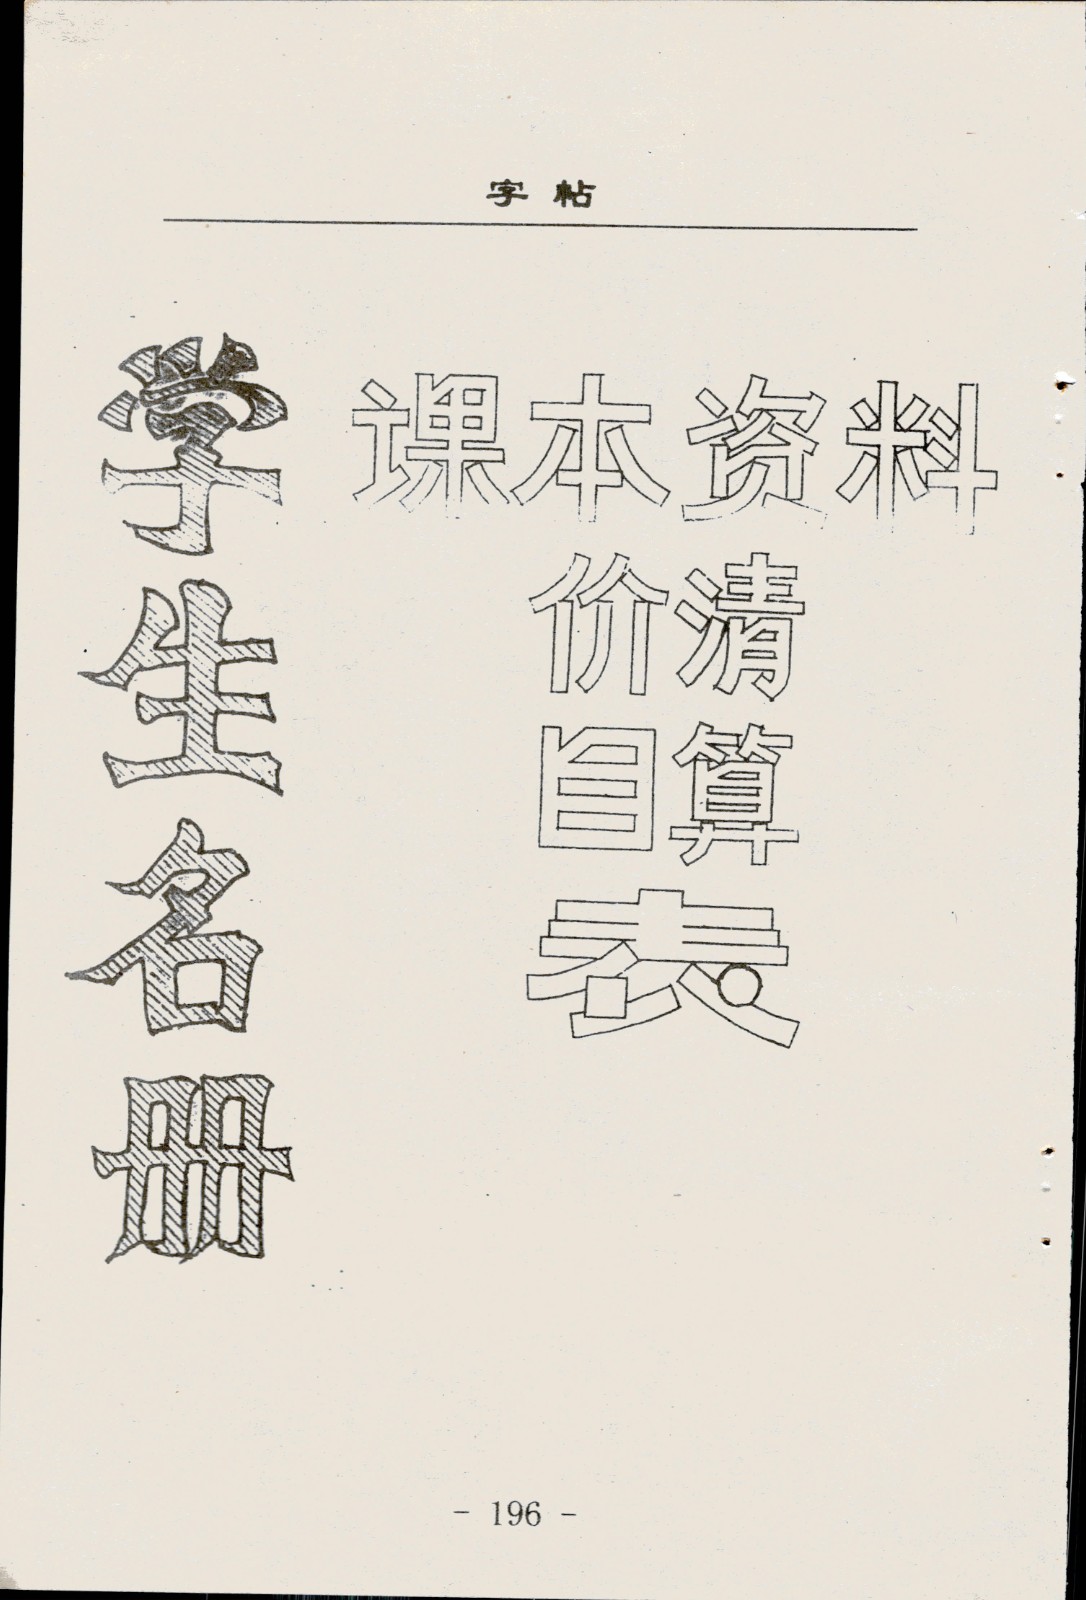 字帖
学生名册
课本资料
价清
目算
表
- 196 -